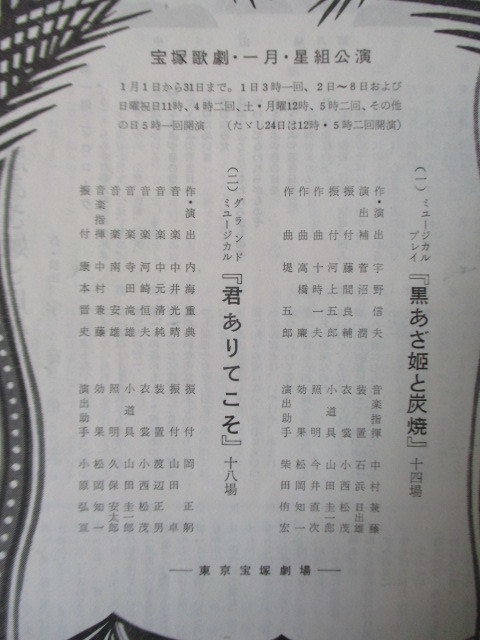 宝塚歌劇・一月・星組公演
1月1日から31日まで。1日3時一回、2日〜8日および
日曜祝日11時、4時二回、土・月曜12時、5時二回、その他
の日5時一回開演　(たゞし24日は12時・5時二回開演)
(一) ミュージカルプレイ 『黒あざ姫と炭焼』 十四場
作・演出 宇野信夫
演出補 菅沼潤
振付 藤間良輔
振付 河上五郎
作曲 十時一夫
作曲 高橋廉
作曲 堤五郎
音楽指揮 中村兼藤
装置 石浜日出雄
衣裳 小西松茂
小道具 山田圭一郎
照明 今井直次
効果 松岡知一
演出助手 柴田侑宏
(二) グランドミュージカル 『君ありてこそ』 十八場
作・演出 内海重典
音楽 中井光晴
音楽 中元清純
音楽 河崎恒夫
音楽 寺田滝雄
音楽 南安雄
音楽指揮 中村兼藤
振付 康本晋史
振付 岡正躬
振付 山田卓
装置 渡辺正男
衣裳 小西松茂
小道具 山田圭一郎
照明 久保安太郎
効果 松岡知一
演出助手 小原弘亘
── 東京宝塚劇場 ──